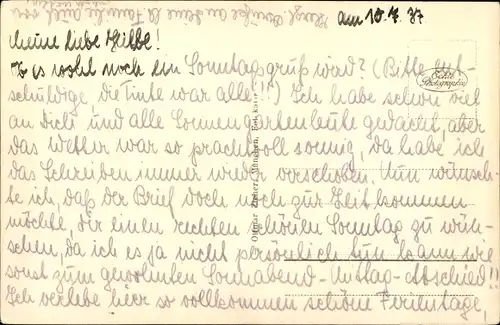 am 10.7.37
Meine liebe Hilbe!
Ob es wohl noch ein Sonntagsgruß wird? (Bitte ent-
schuldige, die Tinte war alle!!) Ich habe schon viel
an Dich und alle Sonnengartenleute gedacht, aber
das Wetter war so prachtvoll sonnig, da habe ich
das Schreiben immer wieder verschoben. Nun wünsch-
te ich, daß der Brief doch noch zur Zeit kommen
möchte, dir einen rechten schönen Sonntag zu wün-
schen, da ich es ja nicht persönlich tun kann wie
sonst zum gewohnten Sonnabend-Mittag-Abschied!"
Ich verlebe hier so vollkommen schöne Ferientage,
Herzl. Grüße an Deine Familie auch von
Echte
Photographie
Ottmar Zieher, München.